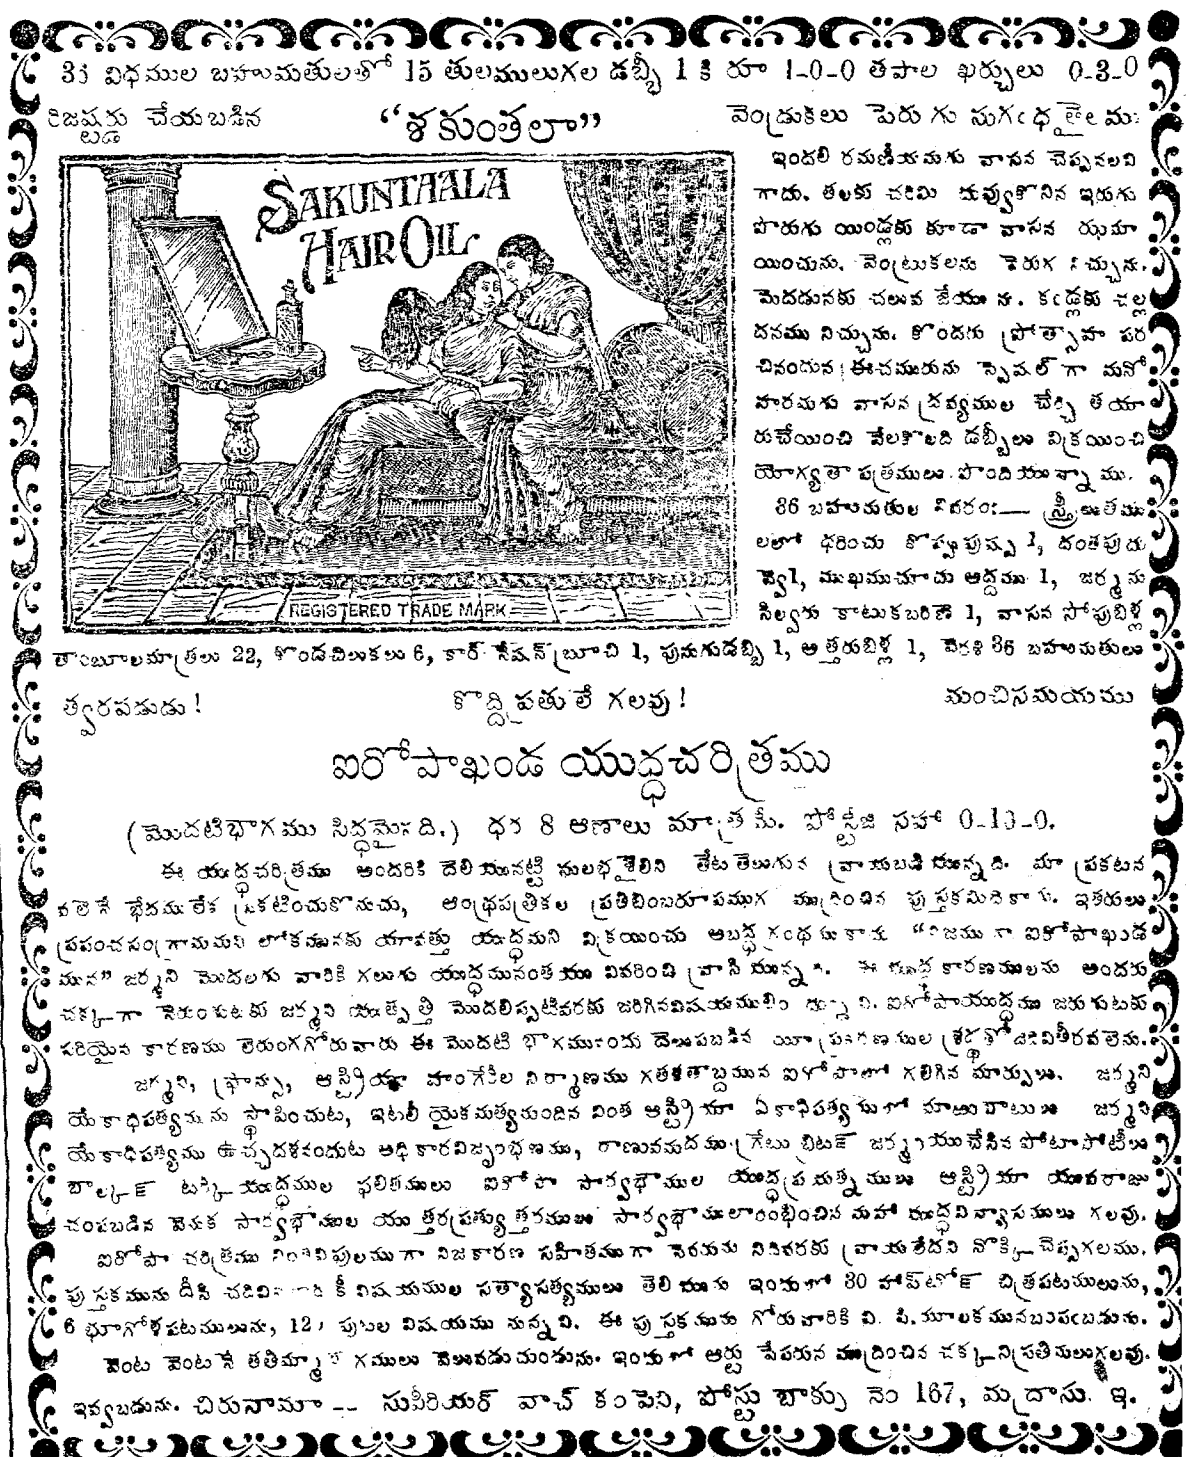 36 విధముల బహుమతులతో 15 తులములుగల డబ్బీ 1 కి రూ 1-0-0 తపాల ఖర్చులు 0-3-0
రిజష్టరు చేయబడిన
“శకుంతలా”
వెండ్రుకలు పెరుగు సుగంధ తైలము
SAKUNTAALA
HAIR OIL
REGISTERED TRADE MARK
ఇందలి రమణీయమగు వాసన చెప్పనలవి
గాదు. తలకు చదిమి దువ్వుకొనిన ఇరుగు
పొరుగు యిండ్లకు కూడా వాసన ఝుమా
యించును. వెంట్రుకలను పెరుగ నిచ్చును.
మెదడునకు చలువ జేయును. కండ్లకు చల్ల
దనము నిచ్చును. కొందరు ప్రోత్సాహ పర
చినందున ఈచమురును స్పెషల్ గా మనో
హరమగు వాసన ద్రవ్యముల చేర్చి తయా
రుచేయించి వేలకొలది డబ్బీలు విక్రయించి
యోగ్యతా పత్రములు పొందియున్నాము.
36 బహుమతుల వివరం:— స్త్రీలుతము
లలో ధరించు కొప్పుపువ్వు 1, దంతపుదు
వ్వె1, ముఖముచూచు అద్దము 1, జర్మను
సిల్వరు కాటుకబరిణె 1, వాసన సోపుబిళ్ల
తాంబూలమాత్రలు 22, కొండచిలుకలు 6, కార్ నేషన్ బ్రూచి 1, పునుగుడబ్బి 1, అత్తరుబిళ్ల 1, వెరశి 36 బహుమతులు
త్వరపడుడు!
కొద్ది ప్రతులే గలవు!
మంచిసమయము
ఐరోపాఖండ యుద్ధచరిత్రము
(మొదటిభాగము సిద్ధమైనది.) ధర 8 ఆణాలు మాత్రమే. పోస్టేజి సహా 0-10-0.
ఈ యుద్ధచరిత్రము అందరికి దెలియునట్టి సులభశైలిని తేటతెలుగున వ్రాయబడియున్నది. మా ప్రకటన
వలెనే భేదములేక ప్రకటించుకొనుచు, ఆంధ్రపత్రికల ప్రతిబింబరూపముగ ముద్రించిన పుస్తకమిదికాదు. ఇతరులు
ప్రపంచసంగ్రామమని లోకమునకు యావత్తు యుద్ధమని విక్రయించు అబద్ధ గ్రంథముకాదు “నిజముగా ఐరోపాఖండ
మున” జర్మని మొదలగు వారికి గలుగు యుద్ధమునంతయు వివరించి వ్రాసియున్నది. ఈ యుద్ధ కారణములను అందరు
చక్కగా నెరుంగుటకు జర్మని యుత్పత్తి మొదలిప్పటివరకు జరిగినవిషయములిం దున్నవి. ఐరోపాయుద్ధము జరుగుటకు
సరియైన కారణము లెరుంగగోరువారు ఈ మొదటి భాగమునందు దెలుపబడిన యీ ప్రకరణముల శ్రద్ధతో జదివితీరవలెను.
జర్మని, ఫ్రాన్సు, ఆస్ట్రియా హంగేరీల నిర్మాణము గతశతాబ్దమున ఐరోపాలో గలిగిన మార్పులు. జర్మని
యేకాధిపత్యమును స్థాపించుట, ఇటలీ యైకమత్యమందిన వింత ఆస్ట్రియా ఏకాధిపత్యములో మారుపాటులు జర్మని
యేకాధిపత్యము ఉచ్చదశనందుట అధికారవిజృంభణము, రాణువమదము గ్రేటు బ్రిటన్ జర్మనీయుచేసిన పోటాపోటీలు
బాల్కన్ టర్కి యుద్ధముల ఫలితములు ఐరోపా సార్వభౌముల యుద్ధప్రయత్నములు ఆస్ట్రియా యువరాజు
చంపబడిన వెనుక సార్వభౌముల యుత్తరప్రత్యుత్తరములు సార్వభౌములారంభించిన మహా యుద్ధవిన్యాసములు గలవు.
ఐరోపా చరిత్రము నింతవిపులముగా నిజకారణ సహితముగా నెవరును నిదివరకు వ్రాయలేదని నొక్కి చెప్పగలము.
పుస్తకమును దీసి చదివినవారికీ విషయముల సత్యాసత్యములు తెలియును ఇందులో 30 హాప్‌టోన్ చిత్రపటములును,
6 భూగోళపటములును, పుటల విషయము నున్నవి. ఈ పుస్తకమును గోరువారికి వి. పి.మూలకమునబంపంబడును.
వెంట వెంటనే తతిమ్మా భాగములు వెలువడుచుండును. ఇందులో ఆర్టు పేపరున ముద్రించిన చక్కని ప్రతిమలుగ్గలవు.
ఇవ్వబడును. చిరునామా -- సుపీరియర్ వాచ్ కంపెని, పోస్టు బాక్సు నెం 167, మద్రాసు. ఇ.